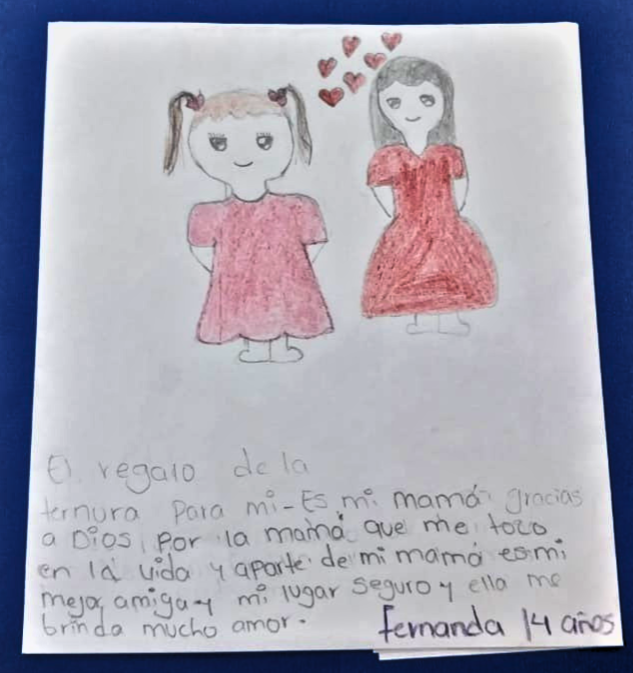 El regalo de la
ternura para mi - Es mi mamá gracias
a Dios por la mamá que me toco
en la vida y aparte de mi mamá es mi
mejor amiga y mi lugar seguro y ella me
brinda mucho amor.
fernanda 14 años